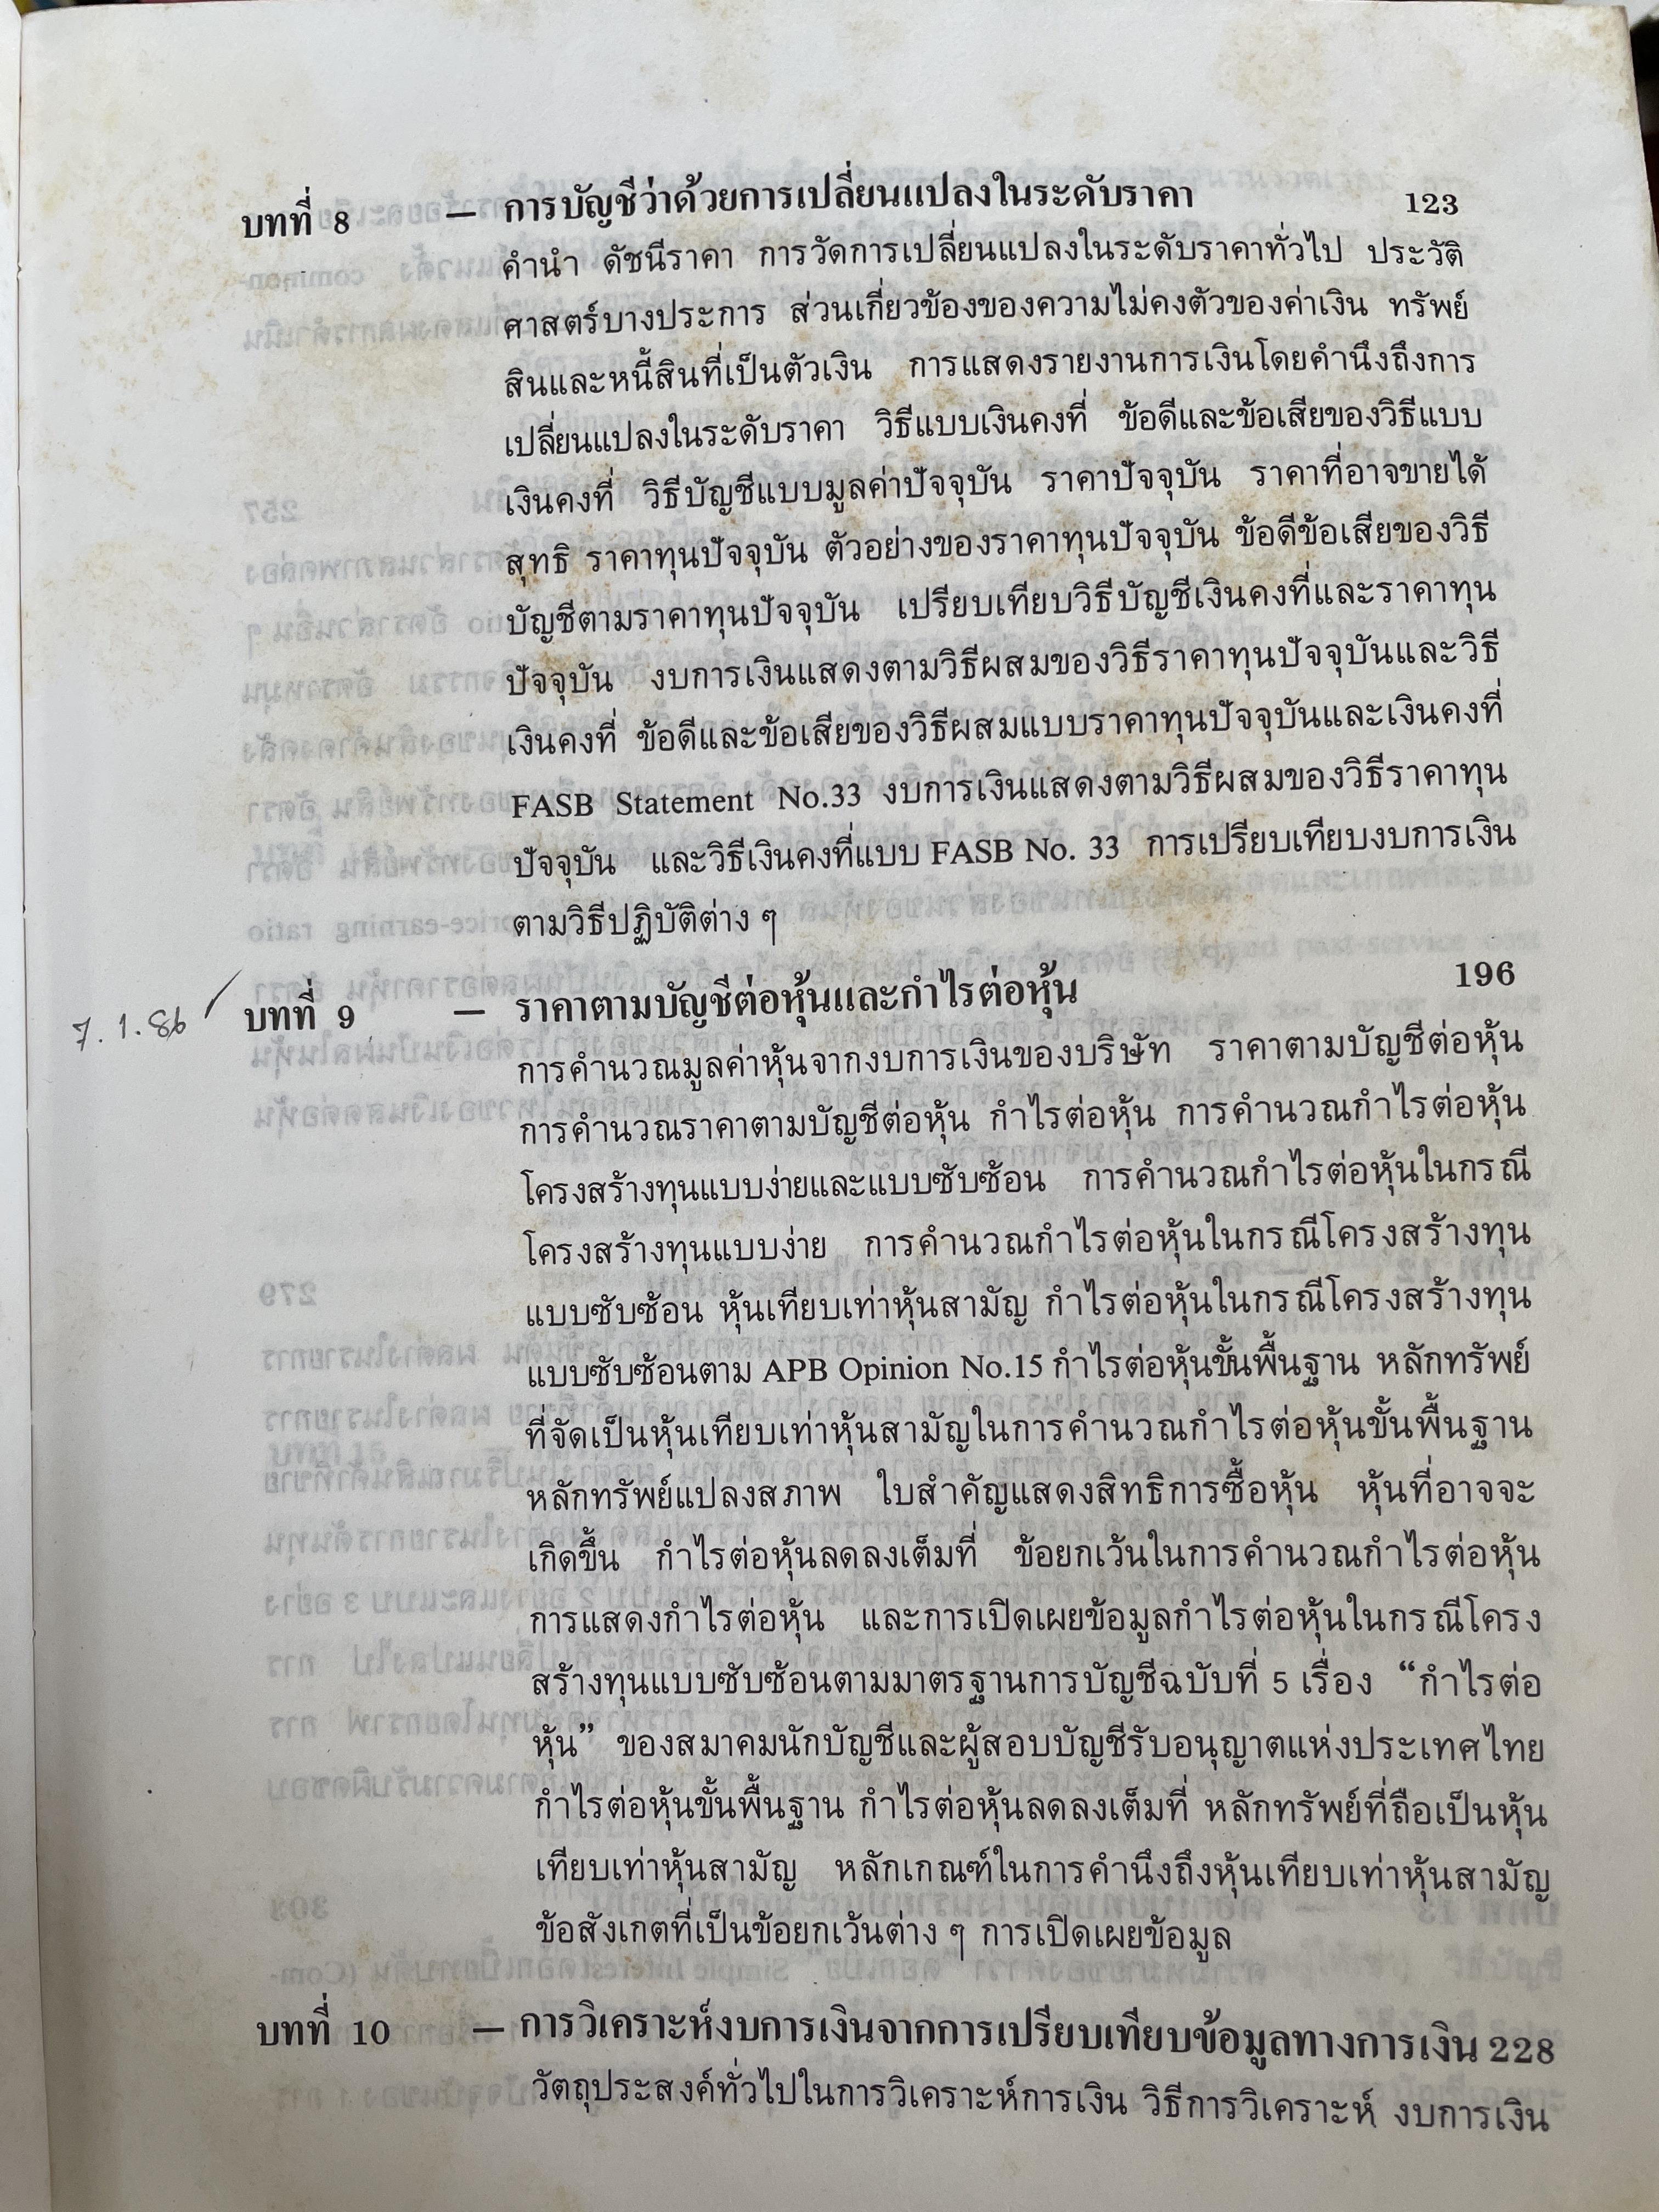 บทที่ 8 — การบัญชีว่าด้วยการเปลี่ยนแปลงในระดับราคา 123
คำนำ ดัชนีราคา การวัดการเปลี่ยนแปลงในระดับราคาทั่วไป ประวัติ
ศาสตร์บางประการ ส่วนเกี่ยวข้องของความไม่คงตัวของค่าเงิน ทรัพย์
สินและหนี้สินที่เป็นตัวเงิน การแสดงรายงานการเงินโดยคำนึงถึงการ
เปลี่ยนแปลงในระดับราคา วิธีแบบเงินคงที่ ข้อดีและข้อเสียของวิธีแบบ
เงินคงที่ วิธีบัญชีแบบมูลค่าปัจจุบัน ราคาปัจจุบัน ราคาที่อาจขายได้
สุทธิ ราคาทุนปัจจุบัน ตัวอย่างของราคาทุนปัจจุบัน ข้อดีข้อเสียของวิธี
บัญชีตามราคาทุนปัจจุบัน เปรียบเทียบวิธีบัญชีเงินคงที่และราคาทุน
ปัจจุบัน งบการเงินแสดงตามวิธีผสมของวิธีราคาทุนปัจจุบันและวิธี
เงินคงที่ ข้อดีและข้อเสียของวิธีผสมแบบราคาทุนปัจจุบันและเงินคงที่
FASB Statement No.33 งบการเงินแสดงตามวิธีผสมของวิธีราคาทุน
ปัจจุบัน และวิธีเงินคงที่แบบ FASB No. 33 การเปรียบเทียบงบการเงิน
ตามวิธีปฏิบัติต่าง ๆ
7.1.86 บทที่ 9 — ราคาตามบัญชีต่อหุ้นและกำไรต่อหุ้น 196
การคำนวณมูลค่าหุ้นจากงบการเงินของบริษัท ราคาตามบัญชีต่อหุ้น
การคำนวณราคาตามบัญชีต่อหุ้น กำไรต่อหุ้น การคำนวณกำไรต่อหุ้น
โครงสร้างทุนแบบง่ายและแบบซับซ้อน การคำนวณกำไรต่อหุ้นในกรณี
โครงสร้างทุนแบบง่าย การคำนวณกำไรต่อหุ้นในกรณีโครงสร้างทุน
แบบซับซ้อน หุ้นเทียบเท่าหุ้นสามัญ กำไรต่อหุ้นในกรณีโครงสร้างทุน
แบบซับซ้อนตาม APB Opinion No.15 กำไรต่อหุ้นขั้นพื้นฐาน หลักทรัพย์
ที่จัดเป็นหุ้นเทียบเท่าหุ้นสามัญในการคำนวณกำไรต่อหุ้นขั้นพื้นฐาน
หลักทรัพย์แปลงสภาพ ใบสำคัญแสดงสิทธิการซื้อหุ้น หุ้นที่อาจจะ
เกิดขึ้น กำไรต่อหุ้นลดลงเต็มที่ ข้อยกเว้นในการคำนวณกำไรต่อหุ้น
การแสดงกำไรต่อหุ้น และการเปิดเผยข้อมูลกำไรต่อหุ้นในกรณีโครง
สร้างทุนแบบซับซ้อนตามมาตรฐานการบัญชีฉบับที่ 5 เรื่อง “กำไรต่อ
หุ้น” ของสมาคมนักบัญชีและผู้สอบบัญชีรับอนุญาตแห่งประเทศไทย
กำไรต่อหุ้นขั้นพื้นฐาน กำไรต่อหุ้นลดลงเต็มที่ หลักทรัพย์ที่ถือเป็นหุ้น
เทียบเท่าหุ้นสามัญ หลักเกณฑ์ในการคำนึงถึงหุ้นเทียบเท่าหุ้นสามัญ
ข้อสังเกตที่เป็นข้อยกเว้นต่าง ๆ การเปิดเผยข้อมูล
บทที่ 10 — การวิเคราะห์งบการเงินจากการเปรียบเทียบข้อมูลทางการเงิน 228
วัตถุประสงค์ทั่วไปในการวิเคราะห์การเงิน วิธีการวิเคราะห์ งบการเงิน